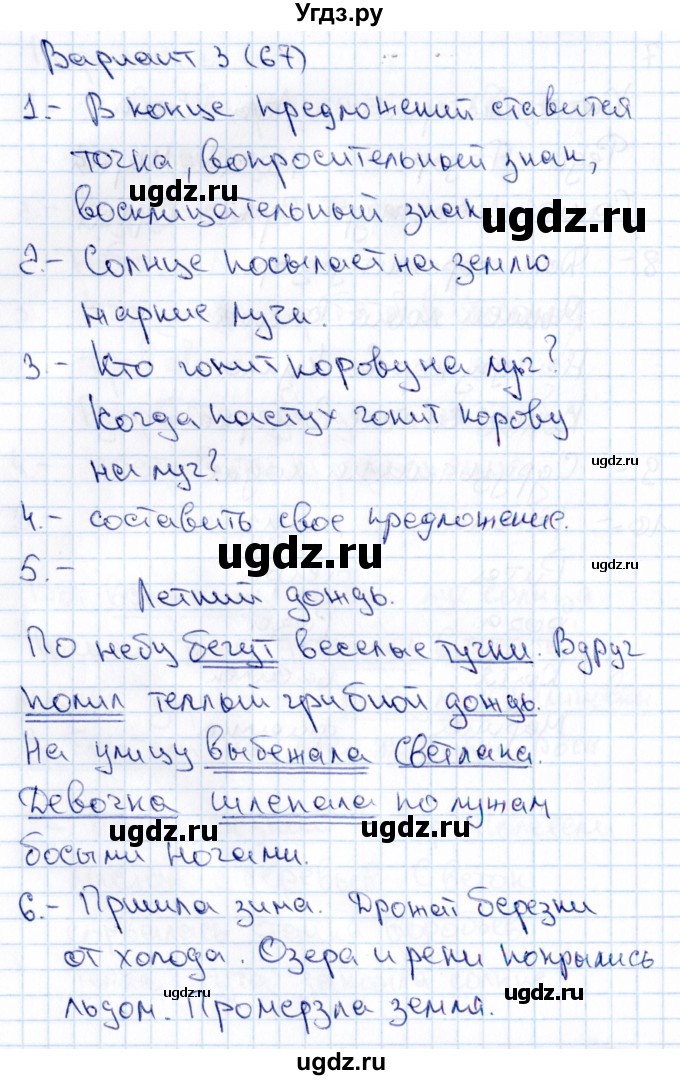 Угдз.ру
Вариант 3 (67)
1.- В конце предложений ставится
точка, вопросительный знак,
ugdz.ru
восклицательный знак
ugdz.ru
2.- Солнце посылает на землю
жаркие лучи.
3.- Кто гонит корову на луг?
Когда пастух гонит корову
на луг?
ugdz.ru
4.- составить свое предложение.
ugdz.ru
ugdz.ru
5.-
Летний дождь.
По небу бегут веселые тучки. Вдруг
полил теплый грибной дождь.
На улицу выбежала Светлана.
Девочка шлепала по лужам
ugdz.ru ugdz.ru
босыми ногами.
6.- Пришла зима. Дрожат березки
от холода. Озера и реки покрылись
ugdz.ru ugdz.ru
льдом. Промерзла земля.
ugdz.ru